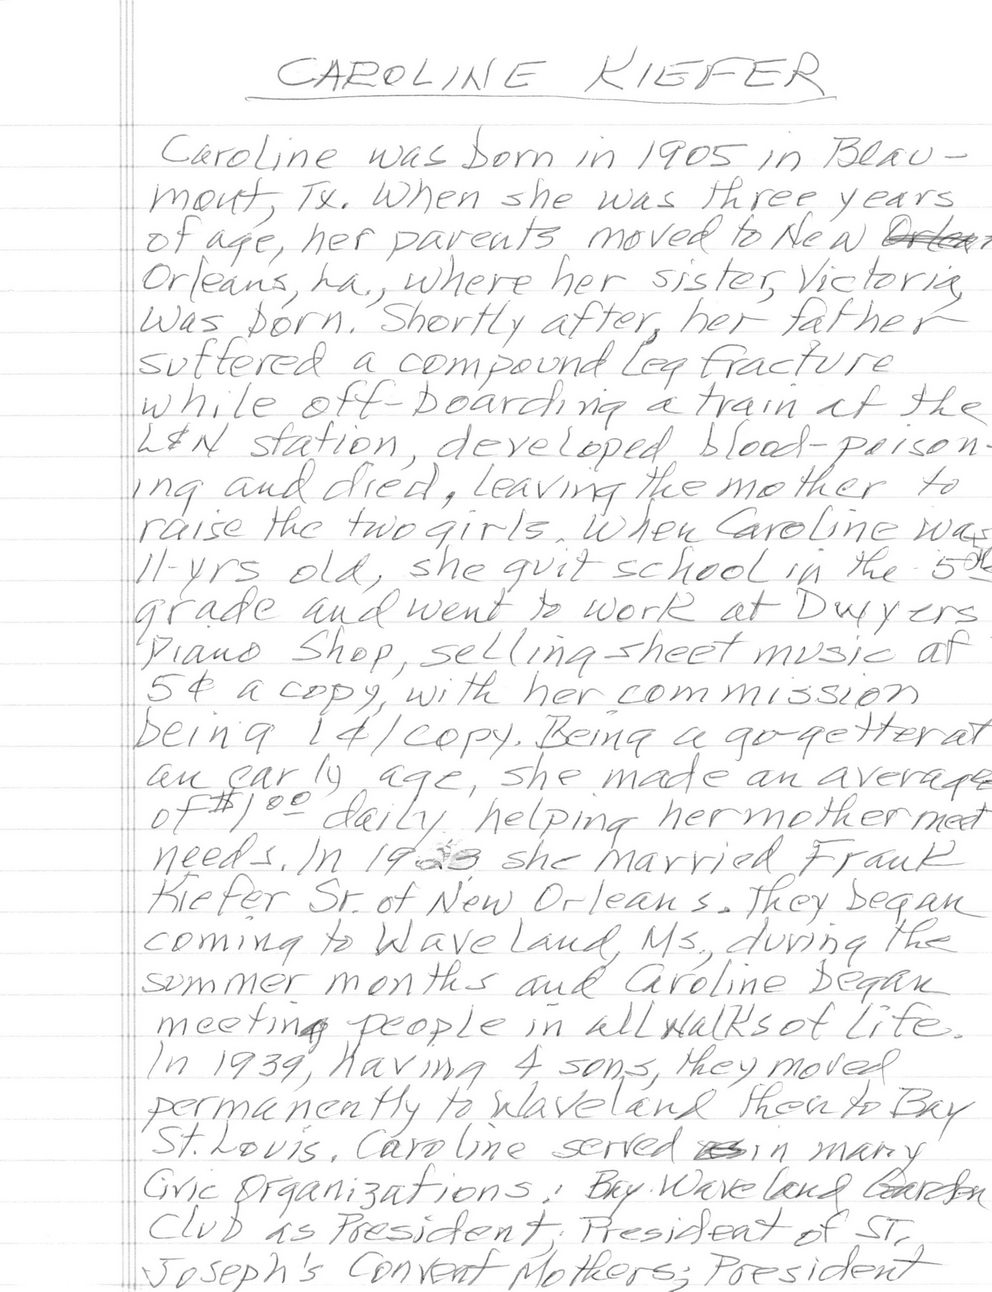 CAROLINE KIEFER
Caroline was born in 1905 in Beau-
mont, Tx. When she was three years
of age, her parents moved to New
Orleans, La., where her sister, Victoria,
was born. Shortly after, her father
suffered a compound leg fracture
while off-boarding a train at the
L&N station, developed blood-poison-
ing and died, leaving the mother to
raise the two girls. When Caroline was
11-yrs old, she quit school in the 5th
grade and went to work at Dwyers
Piano Shop, selling sheet music at
5¢ a copy, with her commission
being 1¢/copy. Being a go-getter at
an early age, she made an average
of $1.00 daily, helping her mother meet
needs. In 19 she married Frank
Kiefer Sr. of New Orleans. They began
coming to Waveland, Ms., during the
summer months and Caroline began
meeting people in all walks of life.
In 1939, having 4 sons, they moved
permanently to Waveland then to Bay
St. Louis. Caroline served in many
Civic Organizations: Bay-Waveland Garden
Club as President; President of St.
Joseph's Convent Mothers; President